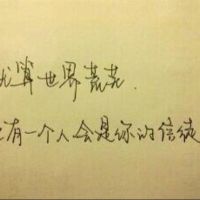 就算世界荒芜.
总有一个人会是你的信徒